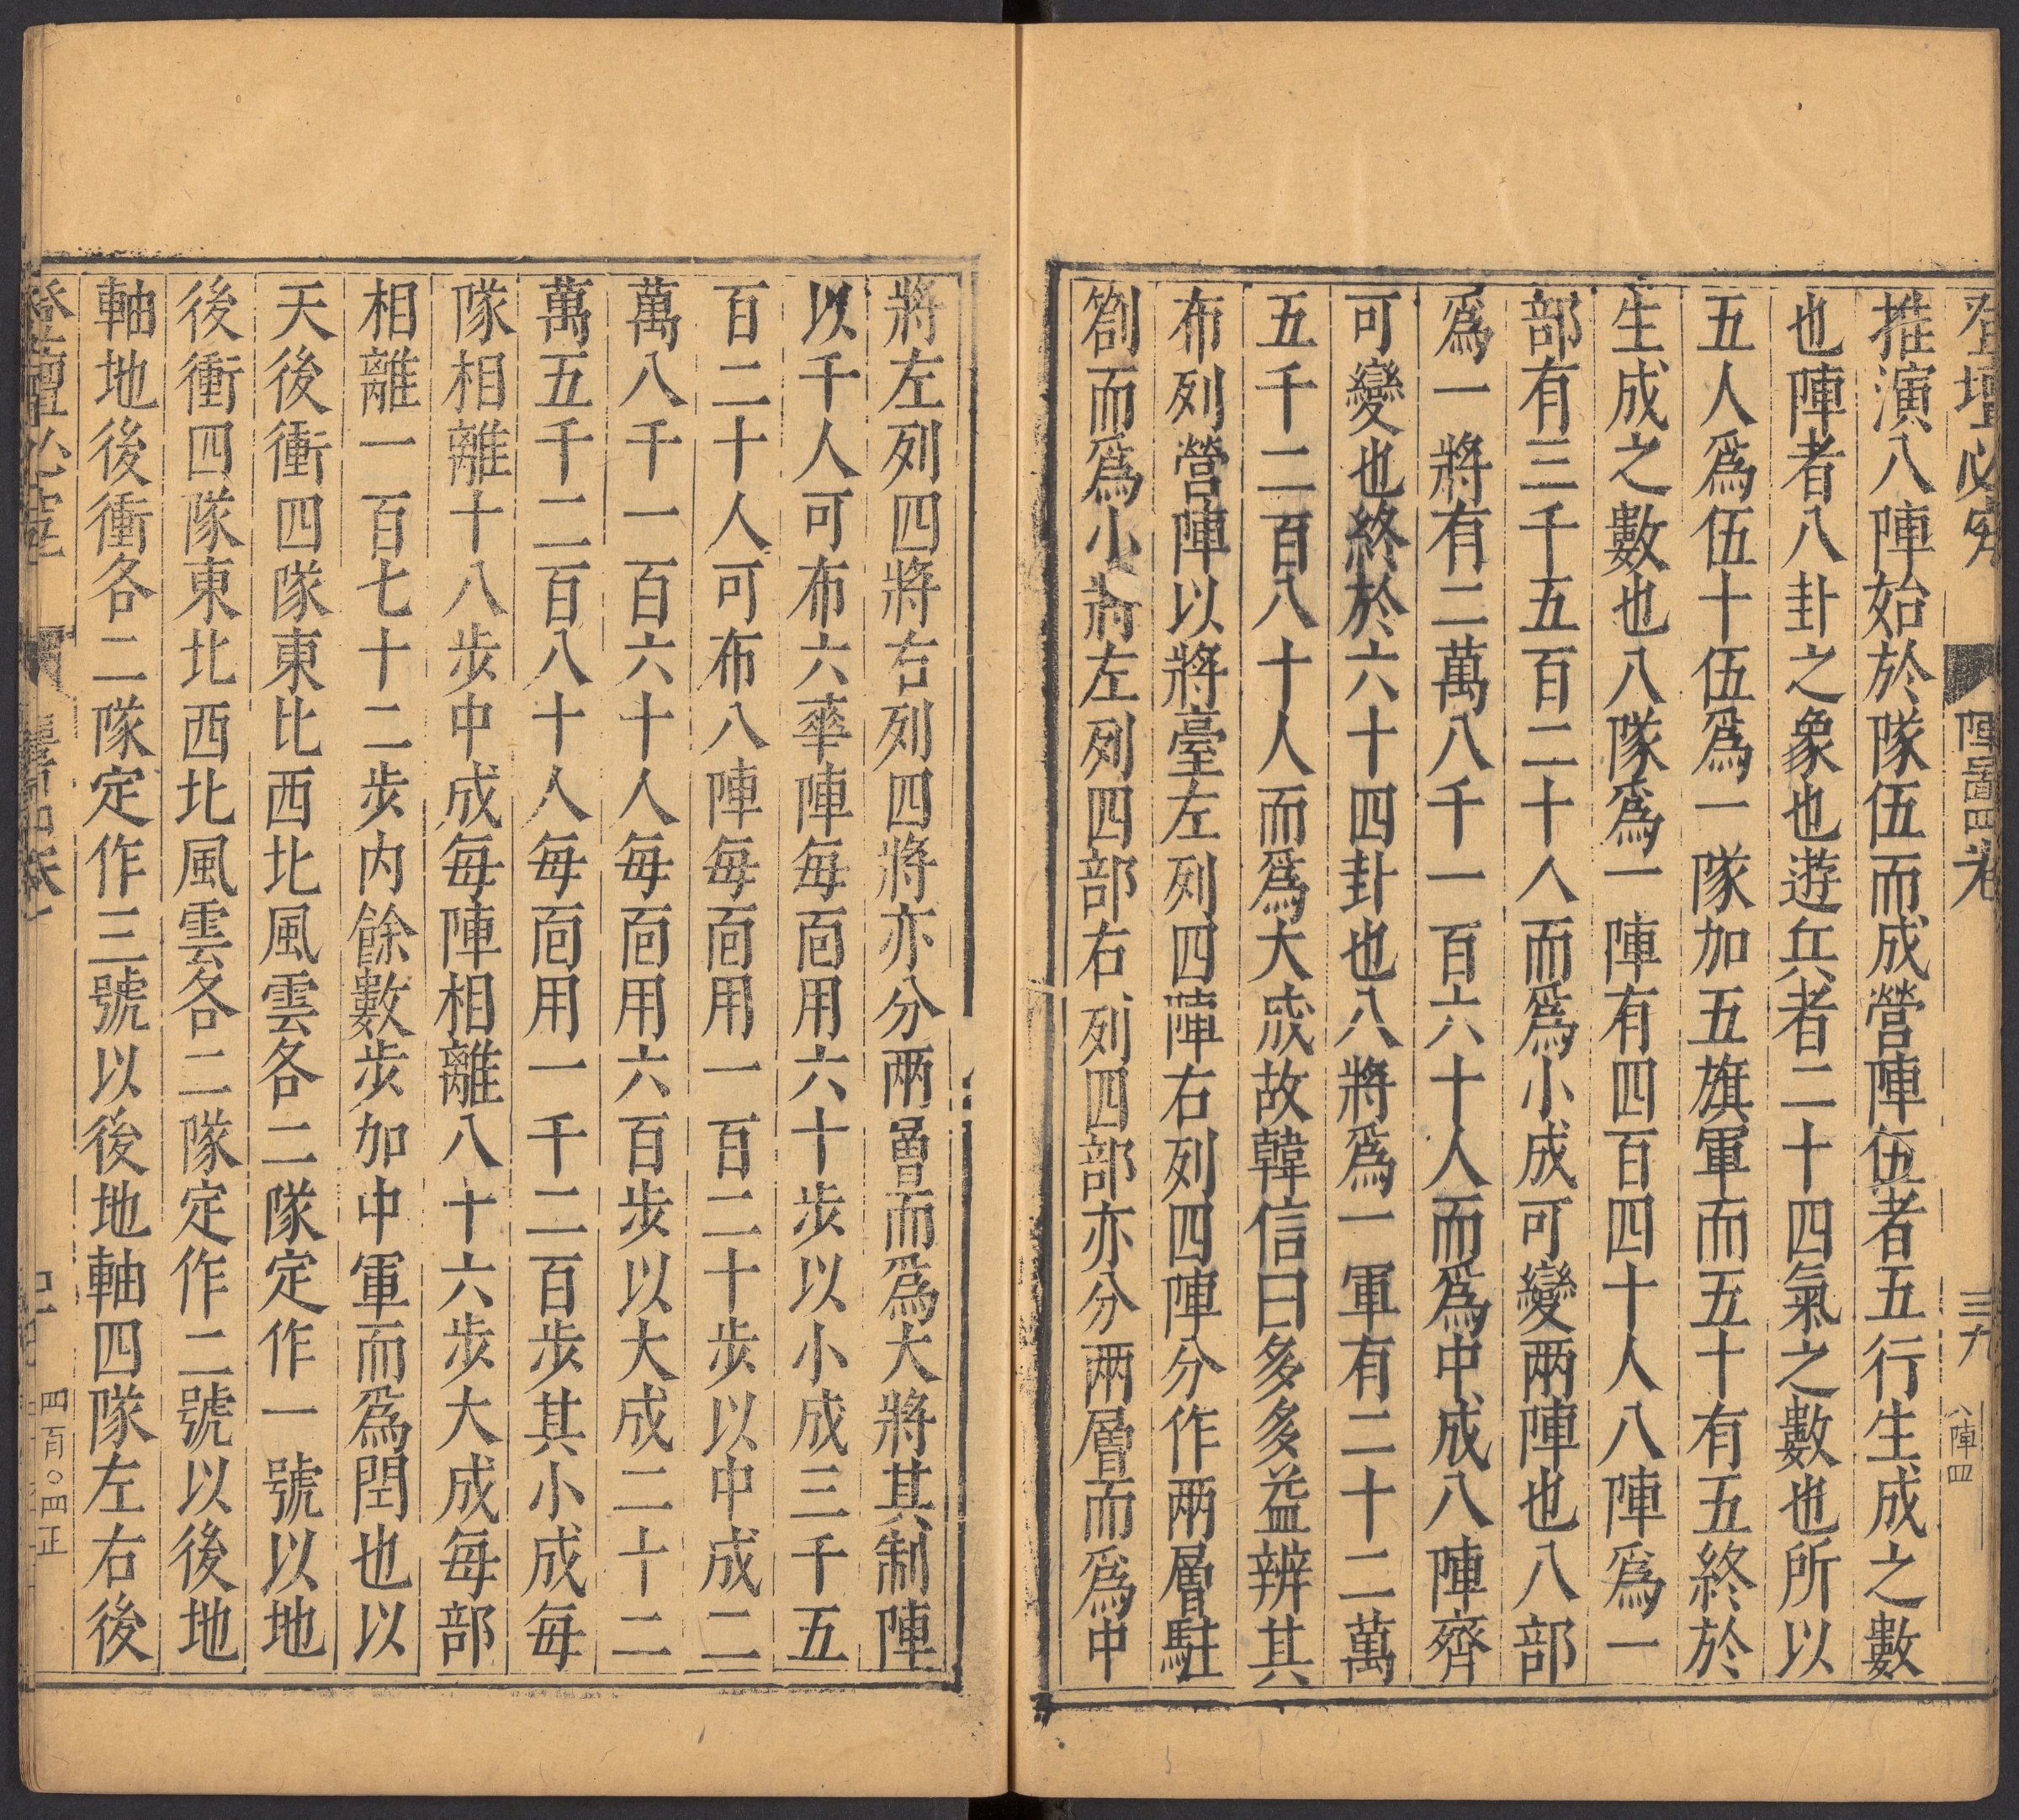 登壇必究 陣圖四卷 三九 八陣四
推演八陣始於隊伍而成營陣伍者五行生成之數
也陣者八卦之象也遊兵者二十四氣之數也所以
五人爲伍十伍爲一隊加五旗軍而五十有五終於
生成之數也八隊爲一陣有四百四十人八陣爲一
部有三千五百二十人而爲小成可變兩陣也八部
爲一將有二萬八千一百六十人而爲中成八陣齊
可變也終於六十四卦也八將爲一軍有二十二萬
五千二百八十人而爲大成故韓信曰多多益辨其
布列營陣以將臺左列四陣右列四陣分作兩層駐
劄而爲小將左列四部右列四部亦分兩層而爲中
將左列四將右列四將亦分兩層而爲大將其制陣
以千人可布六華陣每面用六十步以小成三千五
百二十人可布八陣每面用一百二十步以中成二
萬八千一百六十人每面用六百步以大成二十二
萬五千二百八十人每面用一千二百步其小成每
隊相離十八步中成每陣相離八十六步大成每部
相離一百七十二步内餘數步加中軍而爲閏也以
天後衝四隊東比西北風雲各二隊定作一號以地
後衝四隊東北西北風雲各二隊定作二號以後地
軸地後衝各二隊定作三號以後地軸四隊左右後
登壇必究 四百〇四正